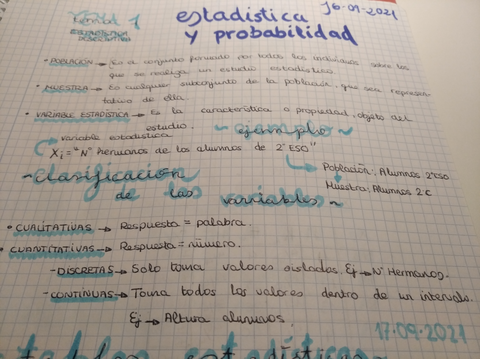 Tema 1
estadística 16-09-2021
ESTADÍSTICA DESCRIPTIVA
y probabilidad
• POBLACIÓN → Es el conjunto formado por todos los individuos sobre los
que se realiza un estudio estadístico
• MUESTRA → Es cualquier subconjunto de la población, que sea represen
tativo de ella.
• VARIABLE ESTADÍSTICA → Es la característica o propiedad, objeto del
estudio.
~ ejemplo ~
variable estadística
Xi = "Nº hermanos de los alumnos de 2º ESO"
Población: Alumnos 2º eso
Muestra: Alumnos 2ºC
~ Clasificación
de las variables ~
• CUALITATIVAS → Respuesta = palabra.
• CUANTITATIVAS → Respuesta = número.
- DISCRETAS → Solo toma valores aislados. Ej → Nº Hermanos.
- CONTÍNUAS → Toma todos los valores dentro de un intervalo.
Ej → Altura alumnos.
17-09-2021
tablas estadísticas